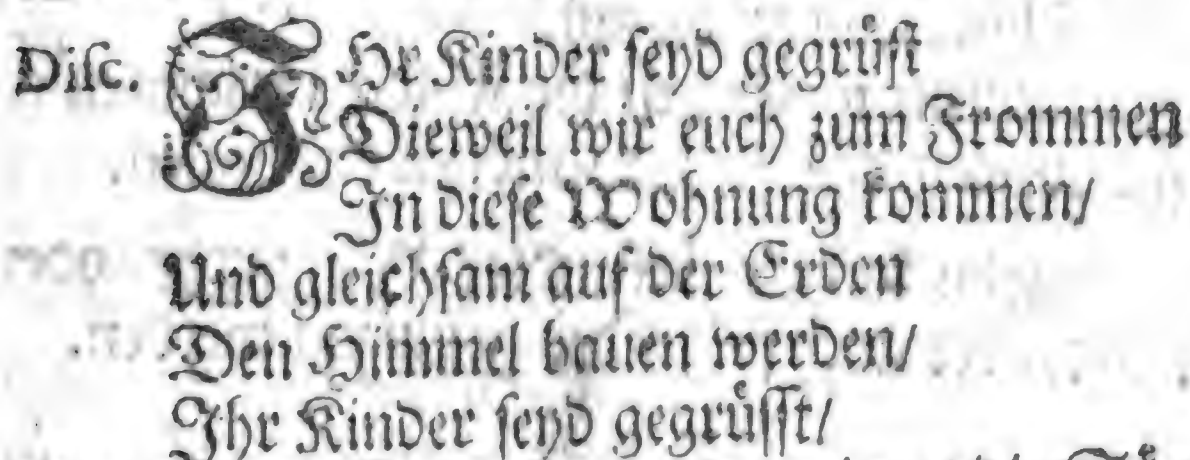 Disc. IHr Kinder seyd gegrüst
Dieweil wir euch zum Frommen
In diese Wohnung kommen/
Und gleichsam auf der Erden
Den Himmel bauen werden/
Ihr Kinder seyd gegrüsst/